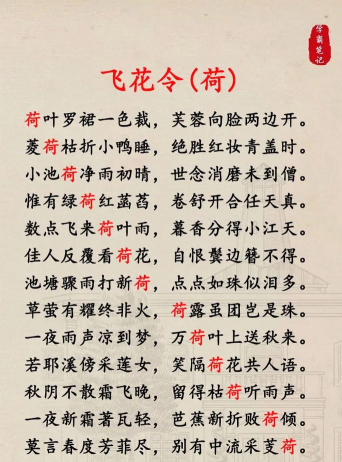 学霸笔记
飞花令(荷)
荷叶罗裙一色裁，芙蓉向脸两边开。
菱荷枯折小鸭睡，绝胜红妆青盖时。
小池荷净雨初晴，世念消磨未到僧。
惟有绿荷红菡萏，卷舒开合任天真。
数点飞来荷叶雨，暮香分得小江天。
佳人反覆看荷花，自恨鬓边簪不得。
池塘骤雨打新荷，点点如珠似泪多。
草萤有耀终非火，荷露虽团岂是珠。
一夜雨声凉到梦，万荷叶上送秋来。
若耶溪傍采莲女，笑隔荷花共人语。
秋阴不散霜飞晚，留得枯荷听雨声。
一夜新霜著瓦轻，芭蕉新折败荷倾。
莫言春度芳菲尽，别有中流采芰荷。